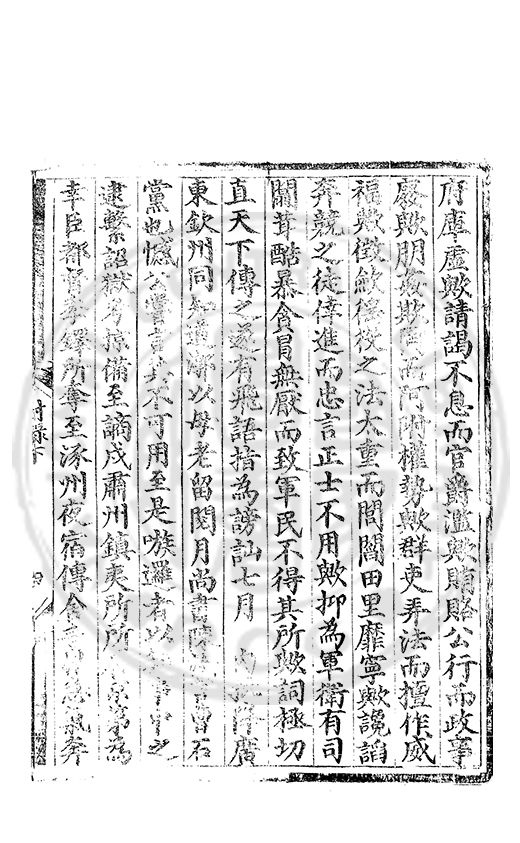 府庫虛歟請謁不息而官爵濫歟賄賂公行而政事
廢歟朋姦欺罔而阿附權勢歟群吏弄法而擅作威
福歟徵斂徭役之法太重而閭閻田里靡寧歟讒諂
奔競之徒倖進而忠言正士不用歟抑為軍衛有司
闒茸酷暴貪冒無厭而致軍民不得其所歟詞極切
直天下傳之遂有飛語指為謗訕七月 內批降廣
東欽州同知適 以母老留閱月尚書陳
黨也憾公嘗言其不可用至是嗾邏者以
逮繫詔獄考掠備至謫戍肅州鎮夷所所 為
幸臣都督 鐸所奪至涿州夜宿傳舍 奔
附錄下